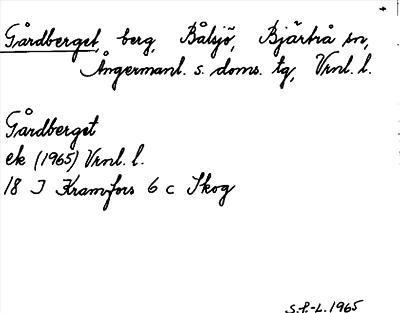 Gårdberget, berg, Bålsjö, Bjärtrå sn,
Ångermanl. s. doms. tg, Vrnl. l.
Gårdberget
ek (1965) Vrnl. l.
18 J Kramfors 6 c Skog
S.P.-L. 1965